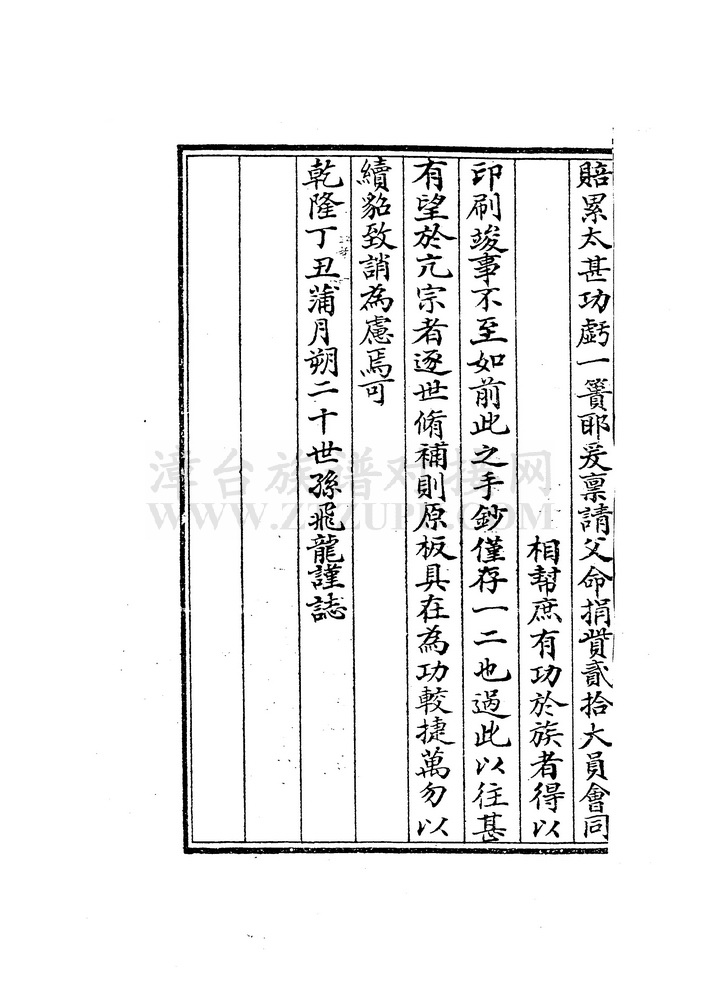 賠累太甚功虧一簣耶爰禀請父命捐貲貳拾大員會同
相幫庶有功於族者得以
印刷竣事不至如前此之手鈔僅存一二也過此以往甚
有望於亢宗者逐世脩補則原板具在為功較捷萬勿以
續貂致誚為慮焉可
乾隆丁丑蒲月朔二十世孫飛龍謹誌
漳台族谱对接网